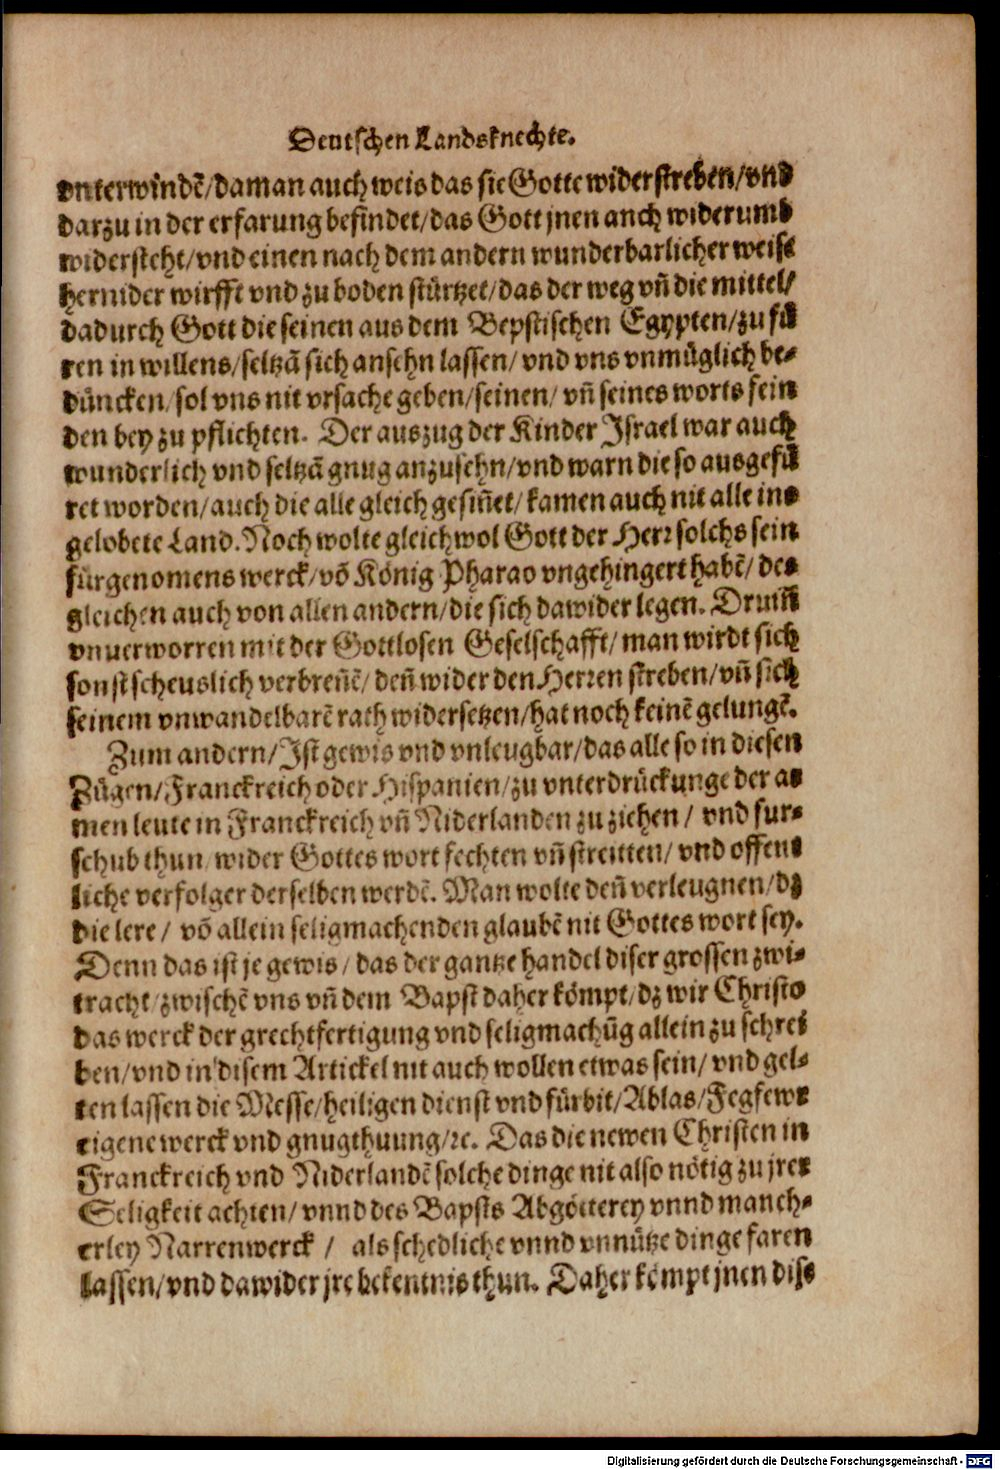 Deutschen Landsknechte.
vnterwindẽ/daman auch weis das sie Gotte widerstreben/vnd
darzu in der erfarung befindet/das Gott jnen auch widerumb
widersteht/vnd einen nach dem andern wunderbarlicher weise
hernider wirfft vnd zu boden stürtzet/das der weg vñ die mittel/
dadurch Gott die seinen aus dem Bepstischen Egypten/zu fü
ren in willens/seltzã sich ansehn lassen/ vnd vns vnmüglich be-
düncken/sol vns nit vrsache geben/seinen/ vñ seines worts fein
den bey zu pflichten. Der auszug der Kinder Israel war auch
wunderlich vnd seltzã gnug anzusehn/vnd warn die so ausgefü
ret worden/auch die alle gleich gesiñet/ kamen auch nit alle ins
gelobete Land. Noch wolte gleichwol Gott der Herr solchs sein
fürgenomens werck/võ König Pharao vngehingert habẽ/ des
gleichen auch von allen andern/die sich dawider legen. Drum̃
vnuerworren mit der Gottlosen Geselschafft/ man wirdt sich
sonst scheuslich verbreñẽ/ deñ wider den Herren streben/vñ sich
seinem vnwandelbarẽ rath widersetzen/hat noch keinẽ gelungẽ.
Zum andern/Ist gewis vnd vnleugbar/das alle so in diesen
Zügen/Franckreich oder Hispanien/zu vnterdrückunge der ar
men leute in Franckreich vñ Niderlanden zu ziehen/ vnd fur-
schub thun/wider Gottes wort fechten vñ streitten/ vnd offent
liche verfolger derselben werdẽ. Man wolte deñ verleugnen/dz
die lere/ võ allein seligmachenden glaubẽ nit Gottes wort sey.
Denn das ist je gewis/das der gantze handel diser grossen zwi-
tracht/zwischẽ vns vñ dem Bapst daher kömpt/dz wir Christo
das werck der grechtfertigung vnd seligmachũg allein zu schrei
ben/vnd in disem Artickel nit auch wollen etwas sein/ vnd gel-
ten lassen die Messe/heiligen dienst vnd fürbit/Ablas/Fegfewr
eigene werck vnd gnugthuung/ꝛc. Das die newen Christen in
Franckreich vnd Niderlandẽ solche dinge nit also nötig zu jrer
Seligkeit achten/ vnnd des Bapsts Abgötterey vnnd manch-
erley Narrenwerck / als schedliche vnnd vnnütze dinge faren
lassen/vnd dawider jre bekentnis thun. Daher kömpt jnen dise
Digitalisierung gefördert durch die Deutsche Forschungsgemeinschaft - DFG